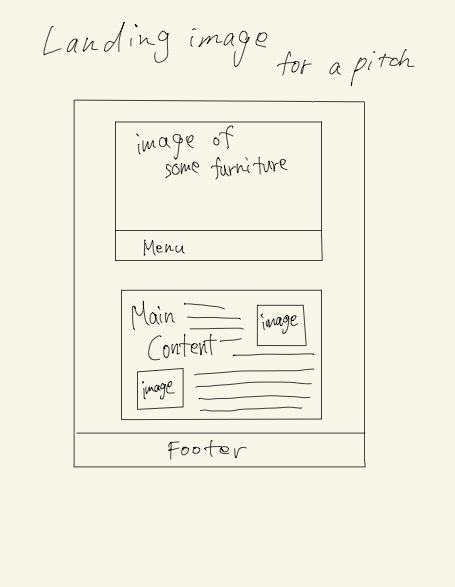 Landing image
for a pitch
image of
some furniture
Menu
Main
Content
image
image
Footer